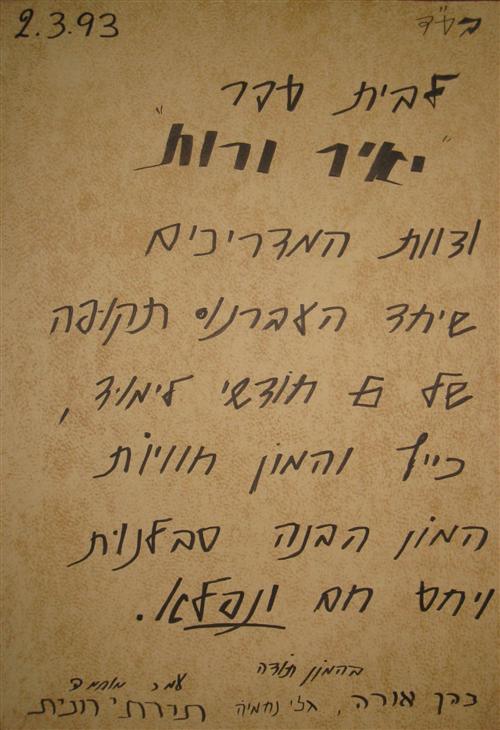 בס"ד 2.3.93
לבית ספר
"יאיר ורות"
וצוות המדריכים
שיחד העברנו תקופה
של חודשי לימוד,
כייף והמון חוויות
המון הבנה סבלנות
ויחס חם ונפלא.
בהמון תודה
כהן אורה, נחמיה רונית